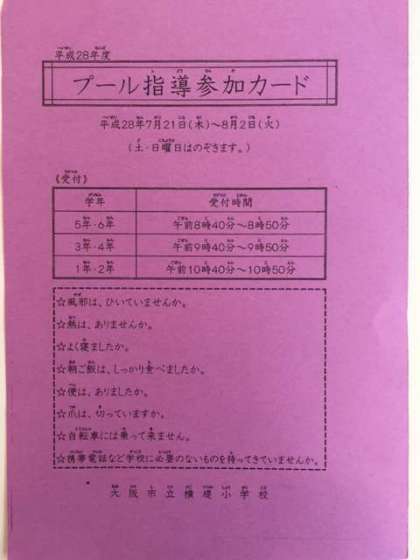 平成28年度
プール指導参加カード
平成28年7月21日(木)～8月2日(火)
(土・日曜日はのぞきます。)
《受付》
学年 受付時間
5年・6年 午前8時40分～8時50分
3年・4年 午前9時40分～9時50分
1年・2年 午前10時40分～10時50分
☆風邪は、ひいていませんか。
☆熱は、ありませんか。
☆よく寝ましたか。
☆朝ご飯は、しっかり食べましたか。
☆便は、ありましたか。
☆爪は、切っていますか。
☆自転車には乗って来ません。
☆携帯電話など学校に必要のないものを持ってきていませんか。
大阪市立横堤小学校